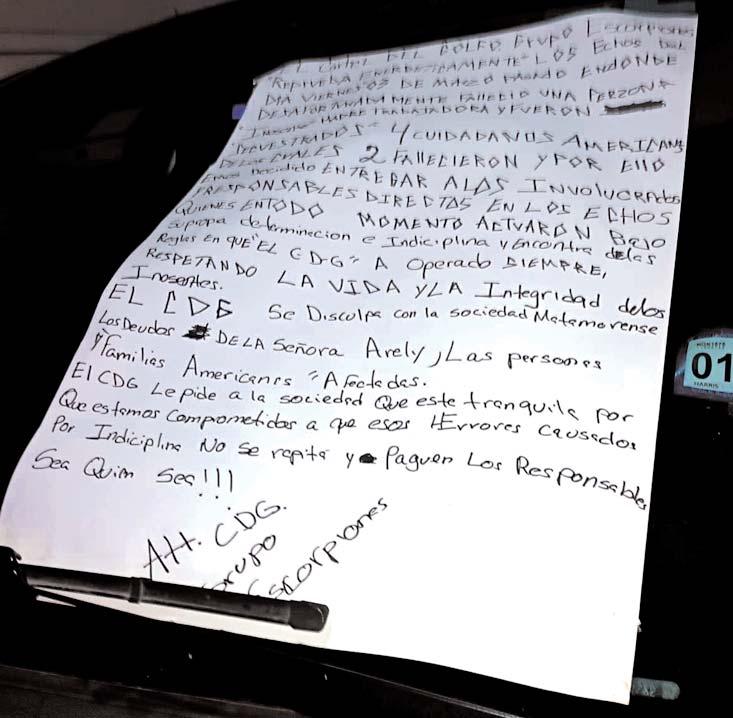 El Cartel DEL GOLFO Grupo Escorpiones
"REPRUEBA ENERGETICAMENTE" LOS Echos DEL
DIA VIERNES 03 DE MARZO PASADO ENDONDE
DESAFORTUNADAMENTE FALLECIO UNA PERZONA
INOSENTE MADRE TRABAJADORA Y FUERON
"SECUESTRADOS" 4 CUIDADANOS AMERICANOS
DE LOS CUALES 2 FALLECIERON Y POR ELLO
Emos Decidido ENTREGAR A LOS INVOLUCRADOS
Y RESPONSABLES DIRECTOS EN LOS ECHOS
QUIENES ENTODO MOMENTO ACTUARON BAJO
Supropa determinacion e Indiciplina y Encontra delas
Reglas EN QUE "EL CDG" A Operado SIEMPRE,
RESPETANDO LA VIDA Y LA Integridad delos
Inosentes.
EL CDG Se Disculpa con la sociedad Matamorense
Los Deudos DE LA Señora Arely, Las personas
y Familias Americanas "Afectadas.
El CDG Le pide a la sociedad Que este tranquila por
Que estamos Comprometidos a que esos Errores Causados
Por Indiciplina No se repita y Paguen Los Responsables
Sea Quim Sea!!!
Att. CDG.
Grupo
Escorpiones
01
HARRIS